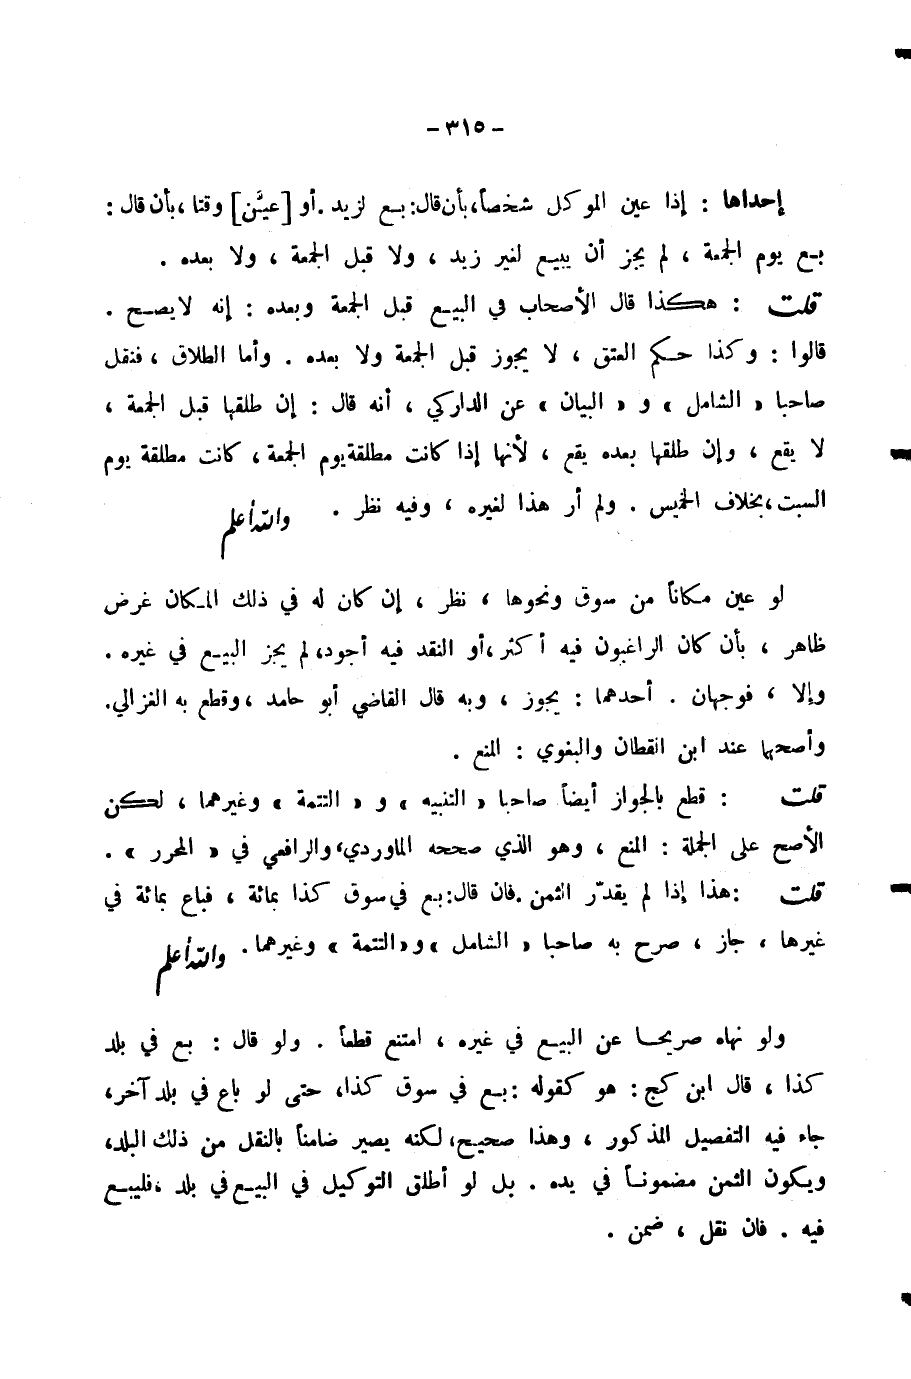 - ٣١٥ -
إحداها : إذا عين الموكل شخصاً، بأن قال: بـع لزيد . أو [عيَّن] وقتا ، بأن قال :
بـع يوم الجمعة ، لم يجز أن يبيـع لغير زيد ، ولا قبل الجمعة ، ولا بعده .
قلت : هكذا قال الأصحاب في البيـع قبل الجمعة وبعده : إنه لا يصـح .
قالوا : وكذا حـكم العتق ، لا يجوز قبل الجمعة ولا بعده . وأما الطلاق ، فنقل
صاحبا « الشامل » و « البيان » عن الداركي ، أنه قال : إن طلقها قبل الجمعة ،
لا يقع ، وإن طلقها بعده يقع ، لأنها إذا كانت مطلقة يوم الجمعة ، كانت مطلقة يوم
السبت ، بخلاف الخميس . ولم أر هذا لغيره ، وفيه نظر . والله أعلم
لو عين مكاناً من سوق ونحوها ، نظر ، إن كان له في ذلك المكان غرض
ظاهر ، بأن كان الراغبون فيه أكثر ، أو النقد فيه أجود، لم يجز البيـع في غيره .
وإلا ، فوجهان . أحدهما : يجوز ، وبه قال القاضي أبو حامد ، وقطع به الغزالي.
وأصحها عند ابن القطان والبغوي : المنع .
قلت : قطع بالجواز أيضاً صاحبا « التنبيه » و « التتمة » وغيرهما ، لكن
الأصح على الجملة : المنع ، وهو الذي صححه الماوردي ، والرافعي في « المحرر » .
قلت : هذا إذا لم يقدّر الثمن . فان قال: بـع في سوق كذا بمائة ، فباع بمائة في
غيرها ، جاز ، صرح به صاحبا « الشامل » و« التتمة » وغيرهما . والله أعلم
ولو نهاه صريحـا عن البيـع في غيره ، امتنع قطعاً . ولو قال : بع في بلد
كذا ، قال ابن كج : هو كقوله : بـع في سوق كذا، حتى لو باع في بلد آخر،
جاء فيه التفصيل المذكور ، وهذا صحيح، لكنه يصير ضامناً بالنقل من ذلك البلد،
ويكون الثمن مضمونـاً في يده . بل لو أطلق التوكيل في البيـع في بلد ، فليبـع
فيه . فان نقل ، ضمن .